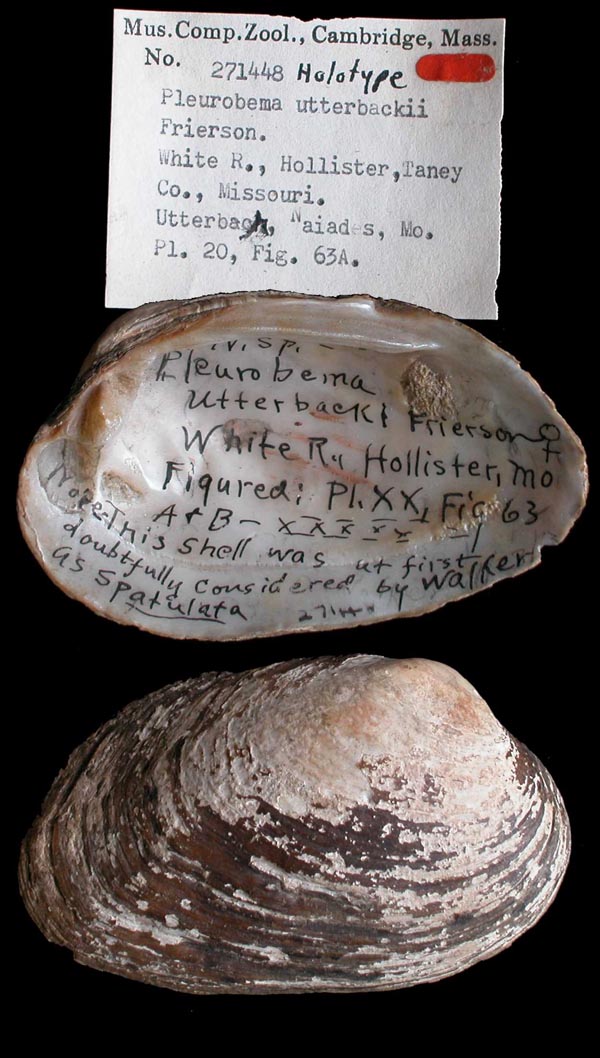 Mus.Comp.Zool., Cambridge, Mass.
No. 271448 Holotype
Pleurobema utterbackii
Frierson.
White R., Hollister,Taney
Co., Missouri.
Utterback, Naiades, Mo.
Pl. 20, Fig. 63A.
N. Sp.
Pleurobema
Utterbacki Frierson ♀
White R., Hollister, Mo
Figured: Pl. XX, Fig 63
A + B -
Note: This shell was at first
doubtfully considered by Walker
as spatulata